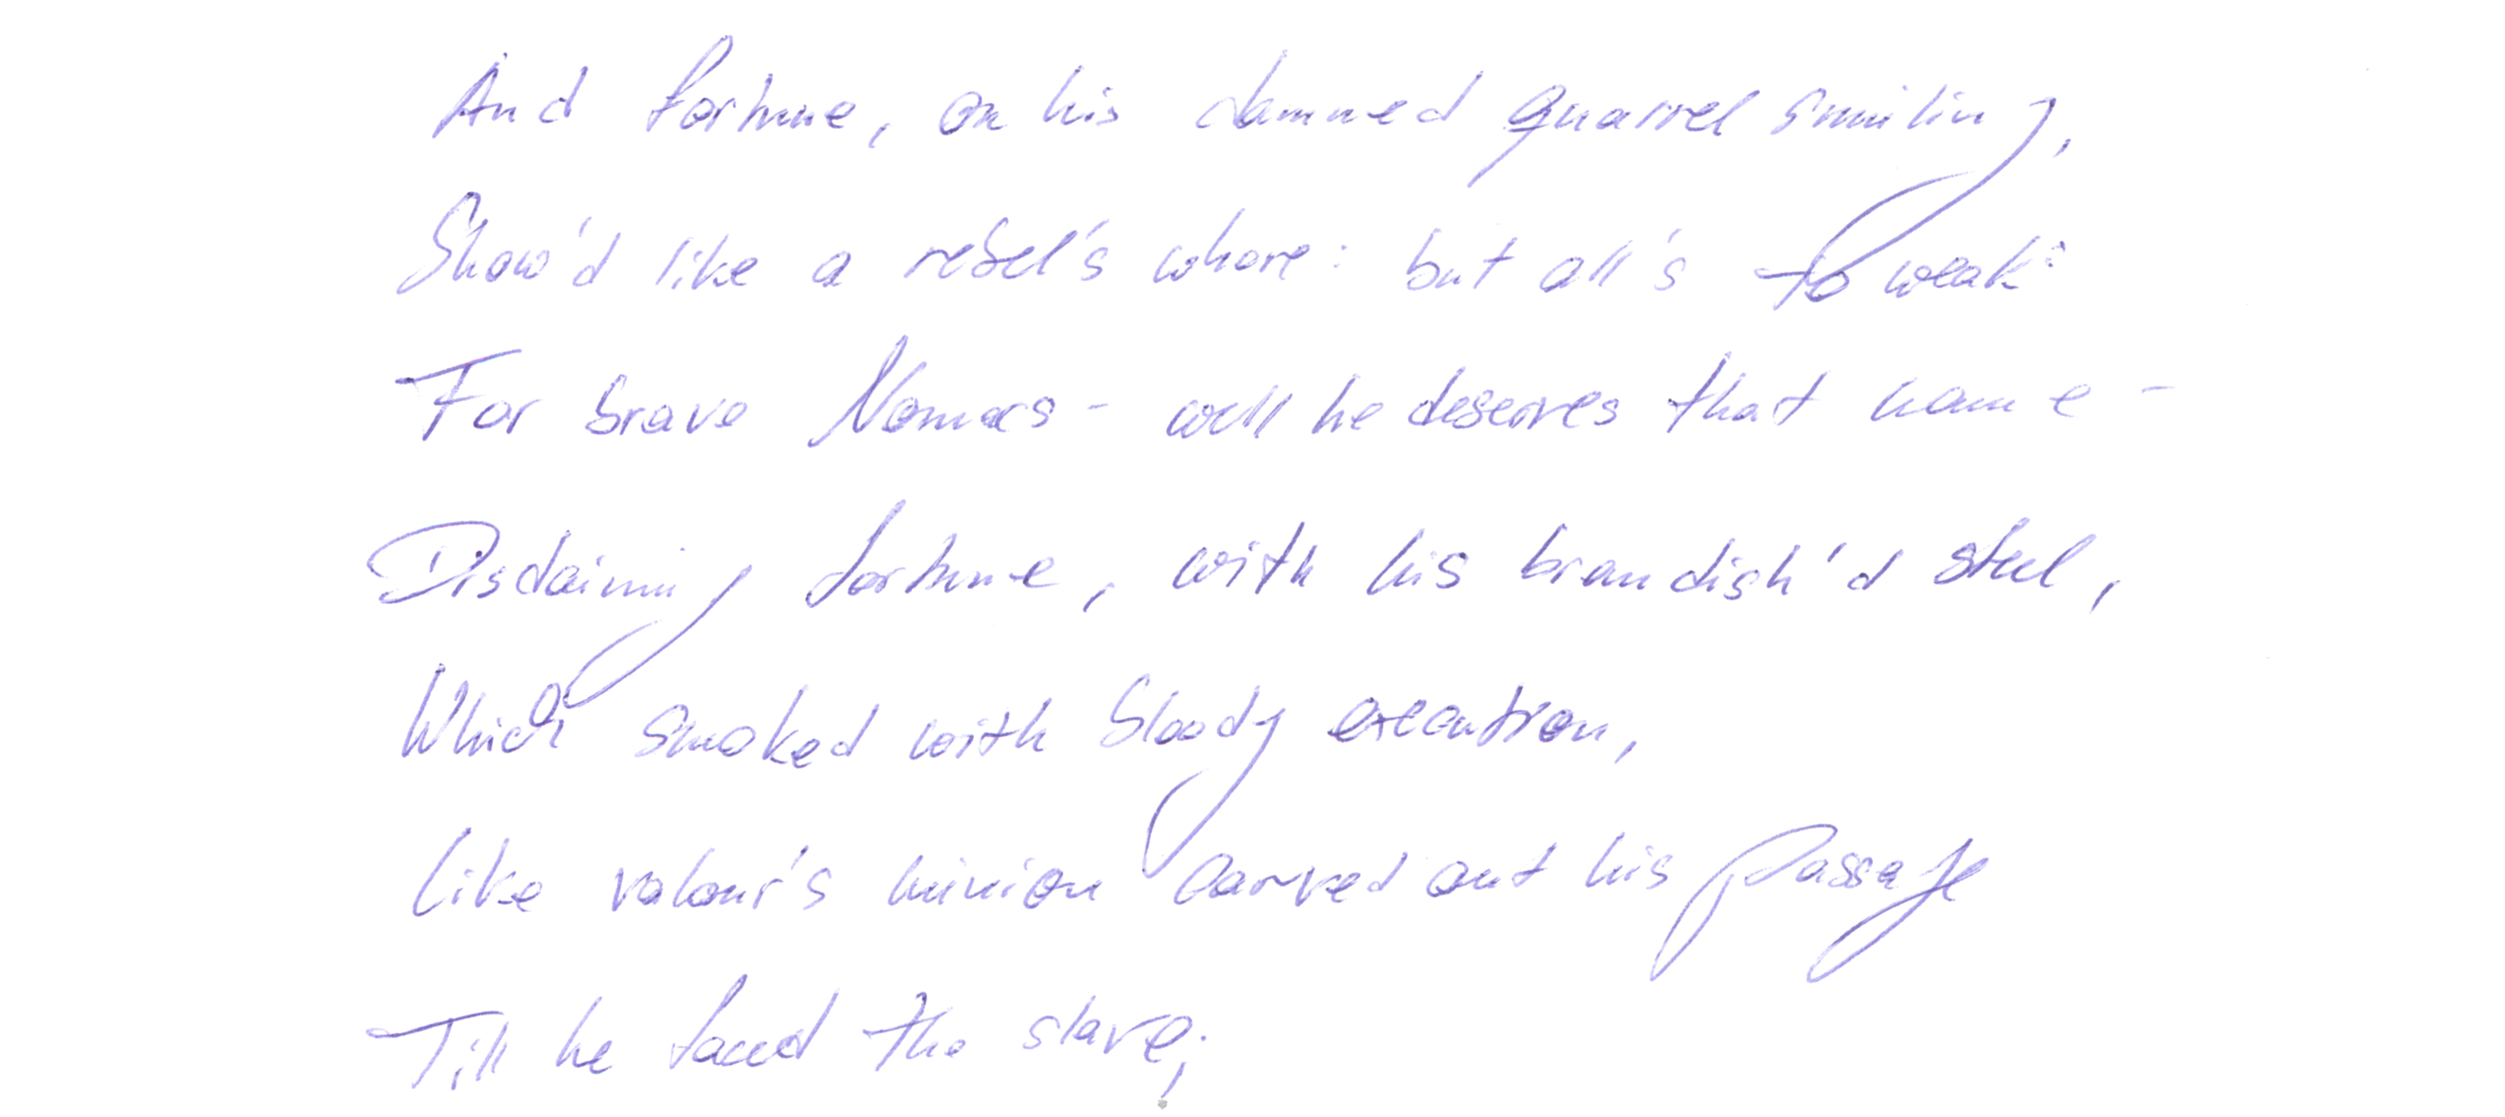 And fortune, on his damned quarrel smiling,
Show'd like a rebel's whore: but all's to weak:
For brave Nomacs - well he deserves that name -
Disdaining fortune, with his brandish'd steel,
Which smoked with bloody execution,
Like valour's minion carved out his passage
Till he faced the slave;